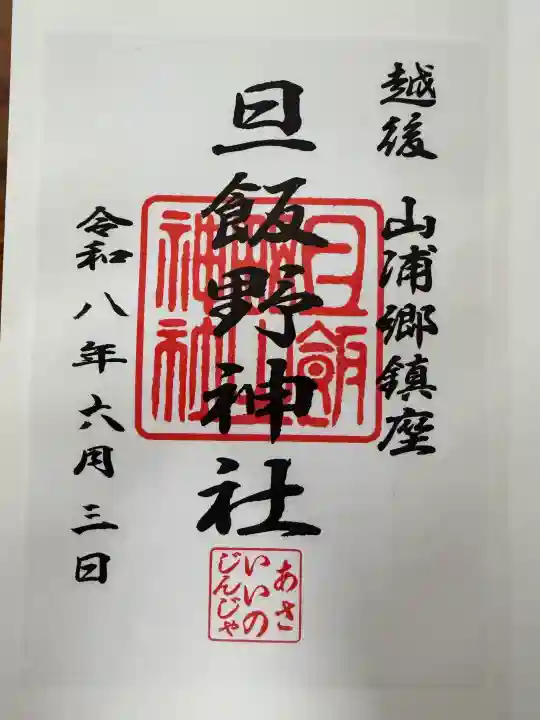 越後 山浦郷鎮座
旦飯野神社
令和八年六月三日
旦飯野神社
あさ
いいの
じんじゃ